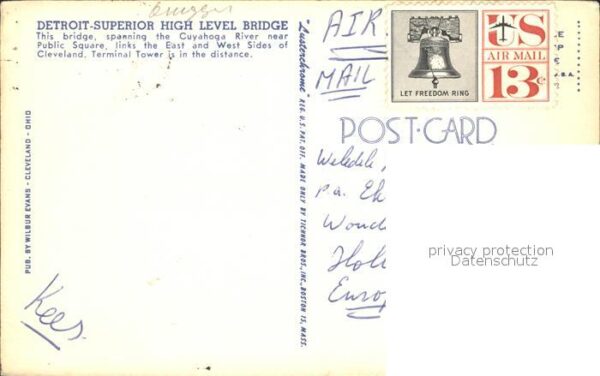 bruggen
DETROIT-SUPERIOR HIGH LEVEL BRIDGE
This bridge, spanning the Cuyahoga River near
Public Square, links the East and West Sides of
Cleveland, Terminal Tower is in the distance.
PUB. BY WILBUR EVANS - CLEVELAND - OHIO
Kees.
"Lusterchrome" REG. U.S. PAT. OFF. MADE ONLY BY TICHNOR BROS., INC., BOSTON 15, MASS.
AIR
MAIL
LET FREEDOM RING
US
AIR MAIL
13c
POST-CARD
p.a.
Euro
privacy protection
Datenschutz